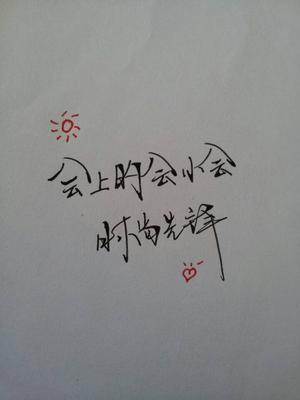 会上的会小会
时尚先锋